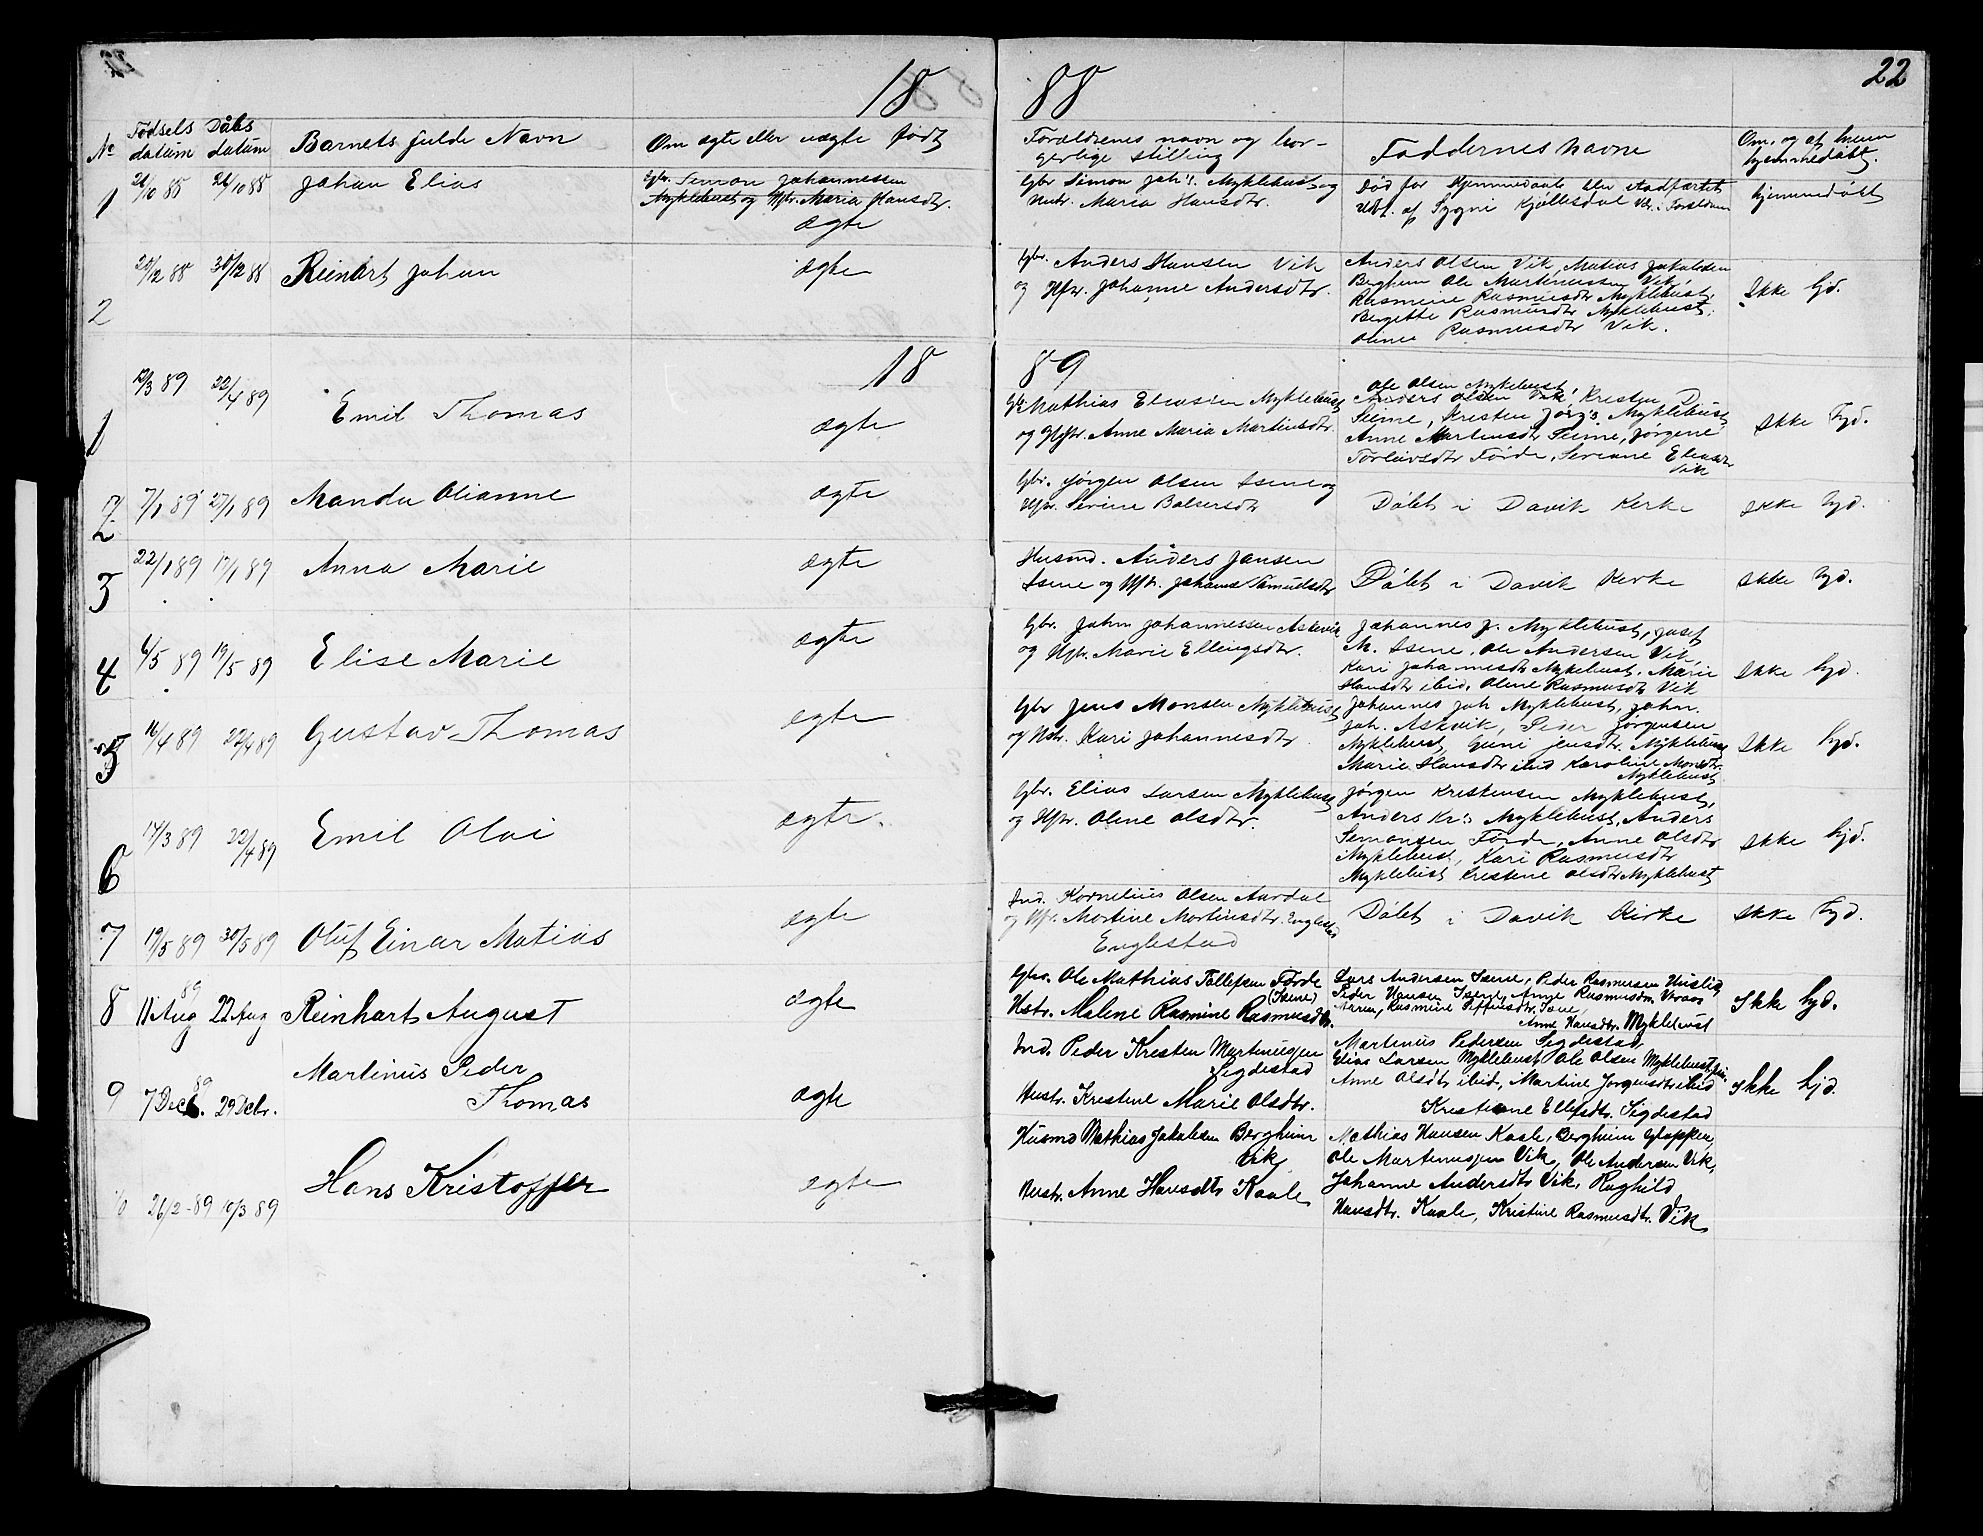 1888
22
No Fødsels datum Dåbs datum Barnets fulde Navn Om ægte eller uægte født Forældrenes navn og bor-
gerlige stilling Faddernes navne Om, og af hvem
hjemmedøbt.
1 26/10 88 26/10 88 Johan Elias Gbr. Simon Johannessen
Myklebust og Hstr. Maria Hansdtr.
ægte
Gbr Simon Joh's. Myklebust og
Hustr. Maria Hansdtr.
Død før Hjemmedaab blev stadfæstet
Udf. af Sygni Kjøllesdal
hjemmedøbt
2 20/12 88 30/12 88 Reinart Johan ægte
Gbr. Anders Hansen Vik
og Hstr. Johanne Andersdtr.
Anders Olsen Vik, Matias Jakobsen
Berghem Ole Martinussen Vik,
Rasmine Rasmusdtr Myklebust,
Bergitte Rasmusdtr Myklebust,
Oline Rasmusdtr Vik.
Ikke hjd.
1889
1 12/3 89 22/4 89 Emil Thomas ægte
Gbr Mathias Eliassen Myklebust
og Hstr. Anne Maria Martinsdtr.
Ole Olsen Myklebust,
Anders Olsen Vik, Kristen
Seime, Kristen Jørg's Myklebust
Anne Martinsdtr Seime, Jørgine
Torleivsdtr Førde, Seriane Eliasdtr
Vik
Ikke hjd.
2 7/1 89 27/1 89 Manda Olianne ægte
Gbr. Jørgen Olsen Isene og
Hstr. Sevine Balsersdtr
Døbt i Davik Kerke
Ikke hjd.
3 22/1 89 17/1 89 Anna Marie ægte
Husmd. Anders Jansen
Isene og Hstr. Johanne Samuelsdtr
Døbt i Davik Kerke
Ikke hjd.
4 6/5 89 19/5 89 Elise Marie ægte
Gbr. John Johannessen Askevik
og Hstr. Marie Ellingsdtr.
Johannes J. Myklebust, Josef
M. Isene, Ole Andersen Vik,
Kari Johannesdtr Myklebust, Marie
Hansdtr ibid. Oline Rasmusdtr Vik
Ikke hjd.
5 16/4 89 22/4 89 Gustav Thomas ægte
Gbr Jens Monsen Myklebust
og Hstr. Kari Johannesdtr.
Johannes Joh Myklebust, John.
Joh. Askvik, Peder Jørgensen
Myklebust, Guni Jensdtr. Myklebust
Marie Hansdtr ibid Karoline Monsdtr.
Myklebust
Ikke hjd.
6 14/3 89 22/4 89 Emil Olai ægte.
Gbr. Elias Larsen Myklebust
og Hstr. Oline Olsdtr.
Jørgen Kristensen Myklebust,
Anders Kr's Myklebust, Anders
Simonsen Førde, Anne Olsdtr
Myklebust, Kari Rasmusdtr
Myklebust Kristine Olsdtr Myklebust
Ikke hjd.
7 19/5 89 30/5 89 Oluf Einar Matias ægte
Ind. Kornelius Olsen Aardal
og Hstr. Martine Martinsdtr. Englestad
Englestad
Døbt i Davik Kirke
Ikke hjd.
8 11 Aug 89 22 Aug Reinhart August ægte
Gbr. Ole Mathias Tollefsen Førde
(Isene)
Hstr. Malene Rasmine Rasmusdtr.
Lars Andersen Isene, Peder Rasmusen
Peder Hansen Isene, Anne Rasmusdtr
Rasmine
Anne Hansdtr. Myklebust
Ikke hjd.
9 7 Dec. 89 29 Decbr. Martinus Peder
Thomas ægte
Ind. Peder Kristen Martinusen
Sigdestad
Hustr. Kristine Marie Olsdtr.
Martinus Pedersen Sigdestad,
Elias Larsen Myklebust Ole Olsen Myklebust,
Anne Olsdtr ibid, Martine Jørgensdtr ibid
Kristiane Ellefsdtr. Sigdestad
Ikke hjd.
10 26/2-89 10/3 89 Hans Kristoffer ægte
Husmd Mathias Jakobsen Bergheim
Vik
Hustr. Anne Hansdtr Kaale
Mathias Hansen Kaale, Bergheim Gloppen,
Ole Martinusen Vik, Ole Andersen Vik,
Johanne Andersdtr Vik, Raghild
Hansdtr. Kaale, Kristine Rasmusdtr. Vik